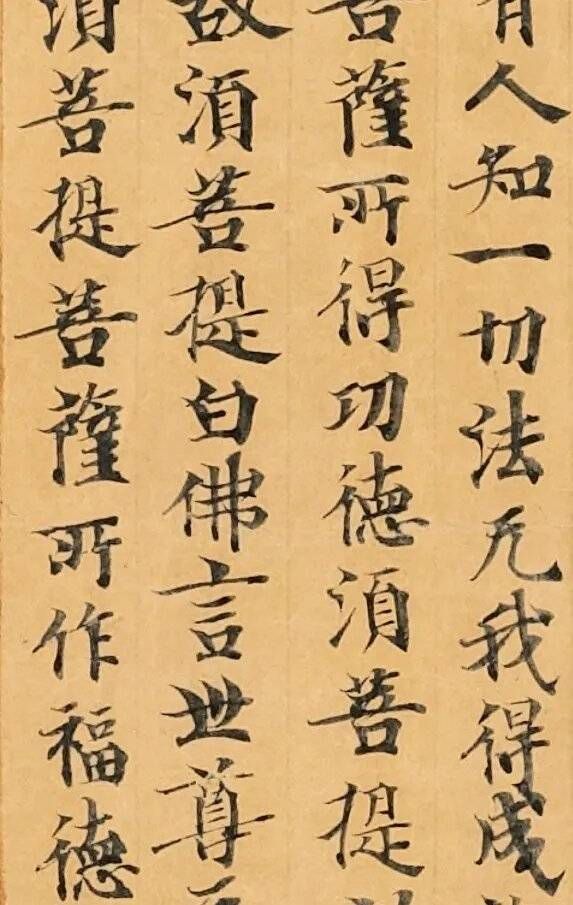 有人知一切法无我得成
菩薩所得功德湏菩提
故湏菩提白佛言世尊
湏菩提菩薩所作福德